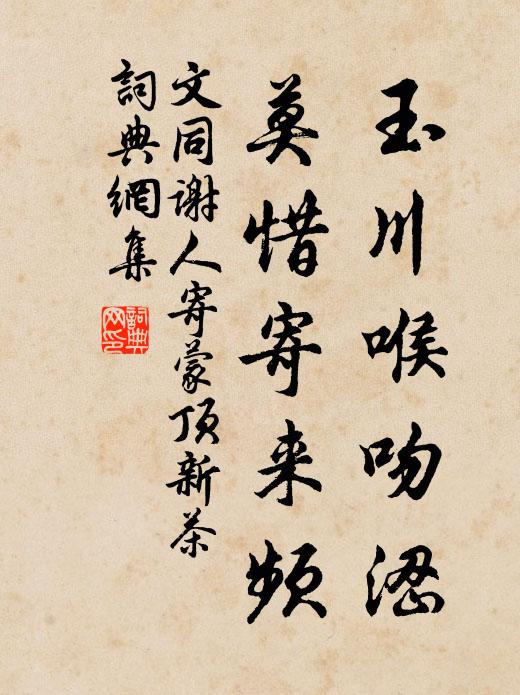 玉川喉吻澀
莫惜寄来頻
文同谢人寄蒙顶新茶
詞典網集
詞典网印